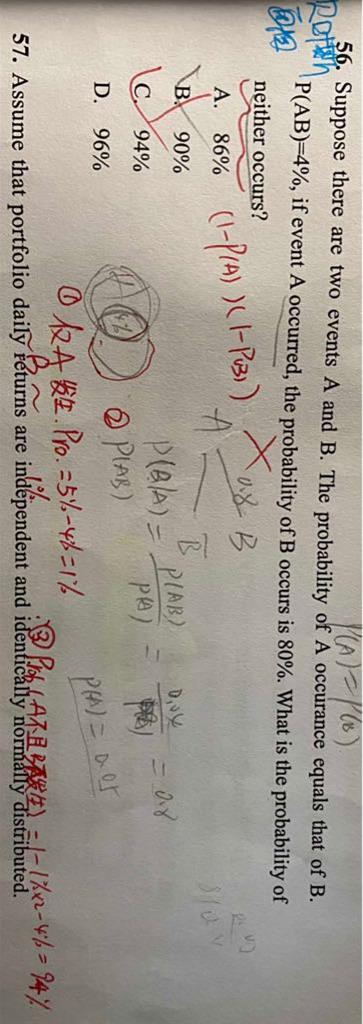 P(A)=P(B)
56. Suppose there are two events A and B. The probability of A occurance equals that of B.
P(AB)=4%, if event A occurred, the probability of B occurs is 80%. What is the probability of
neither occurs?
A. 86%
B. 90%
C. 94%
D. 96%
(1-P(A))(1-P(B)) ×
0.8 B
A
B̄
P(B|A) = P(AB) / P(A) = 0.04 / P(A) = 0.8
P(A) = 0.05
4%
① 仅A发生. Pro. = 5%-4% = 1%
B ~ 1%
② P(AB)
③ Prob(A不且B不发生) = 1-1%×2-4% = 94%
57. Assume that portfolio daily returns are independent and identically normally distributed.